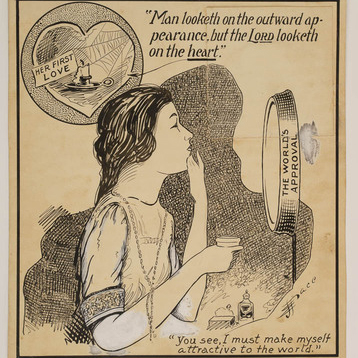 "Man looketh on the outward ap-
pearance, but the LORD looketh
on the heart."
HER FIRST
LOVE
THE WORLD'S
APPROVAL
"You see, I must make myself
attractive to the world."